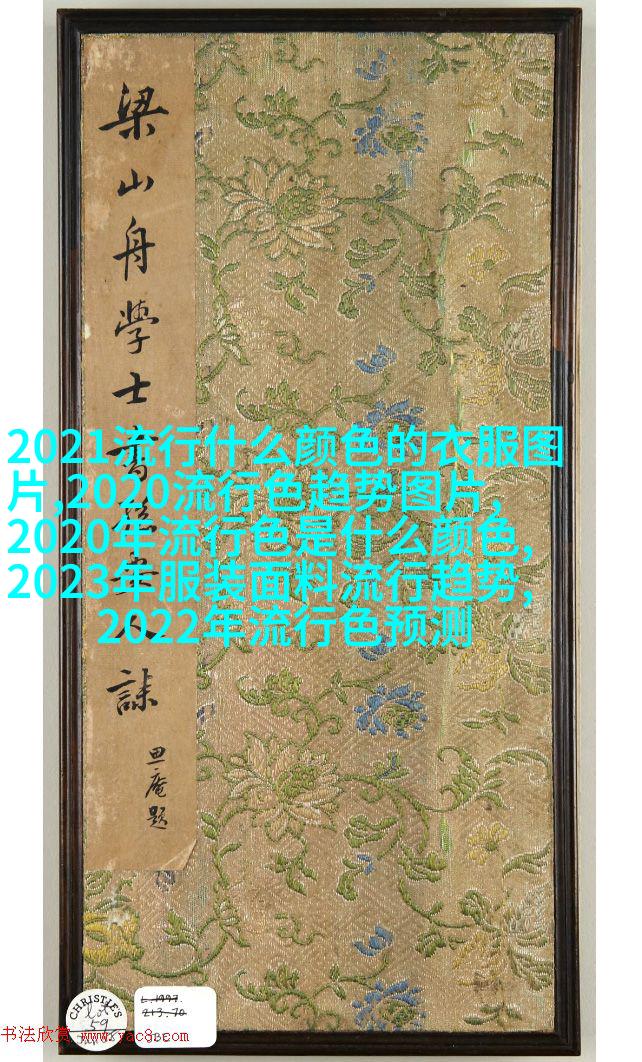 梁山舟學士書安人誄
庵題
2021流行什么颜色的衣服图
片,2020流行色趋势图片,
2020年流行色是什么颜色,
2023年服装面料流行趋势,
2022年流行色预测
CHRISTIE'S
Lot
59
L.1997.
213-70
书法欣赏 www.yac8.com